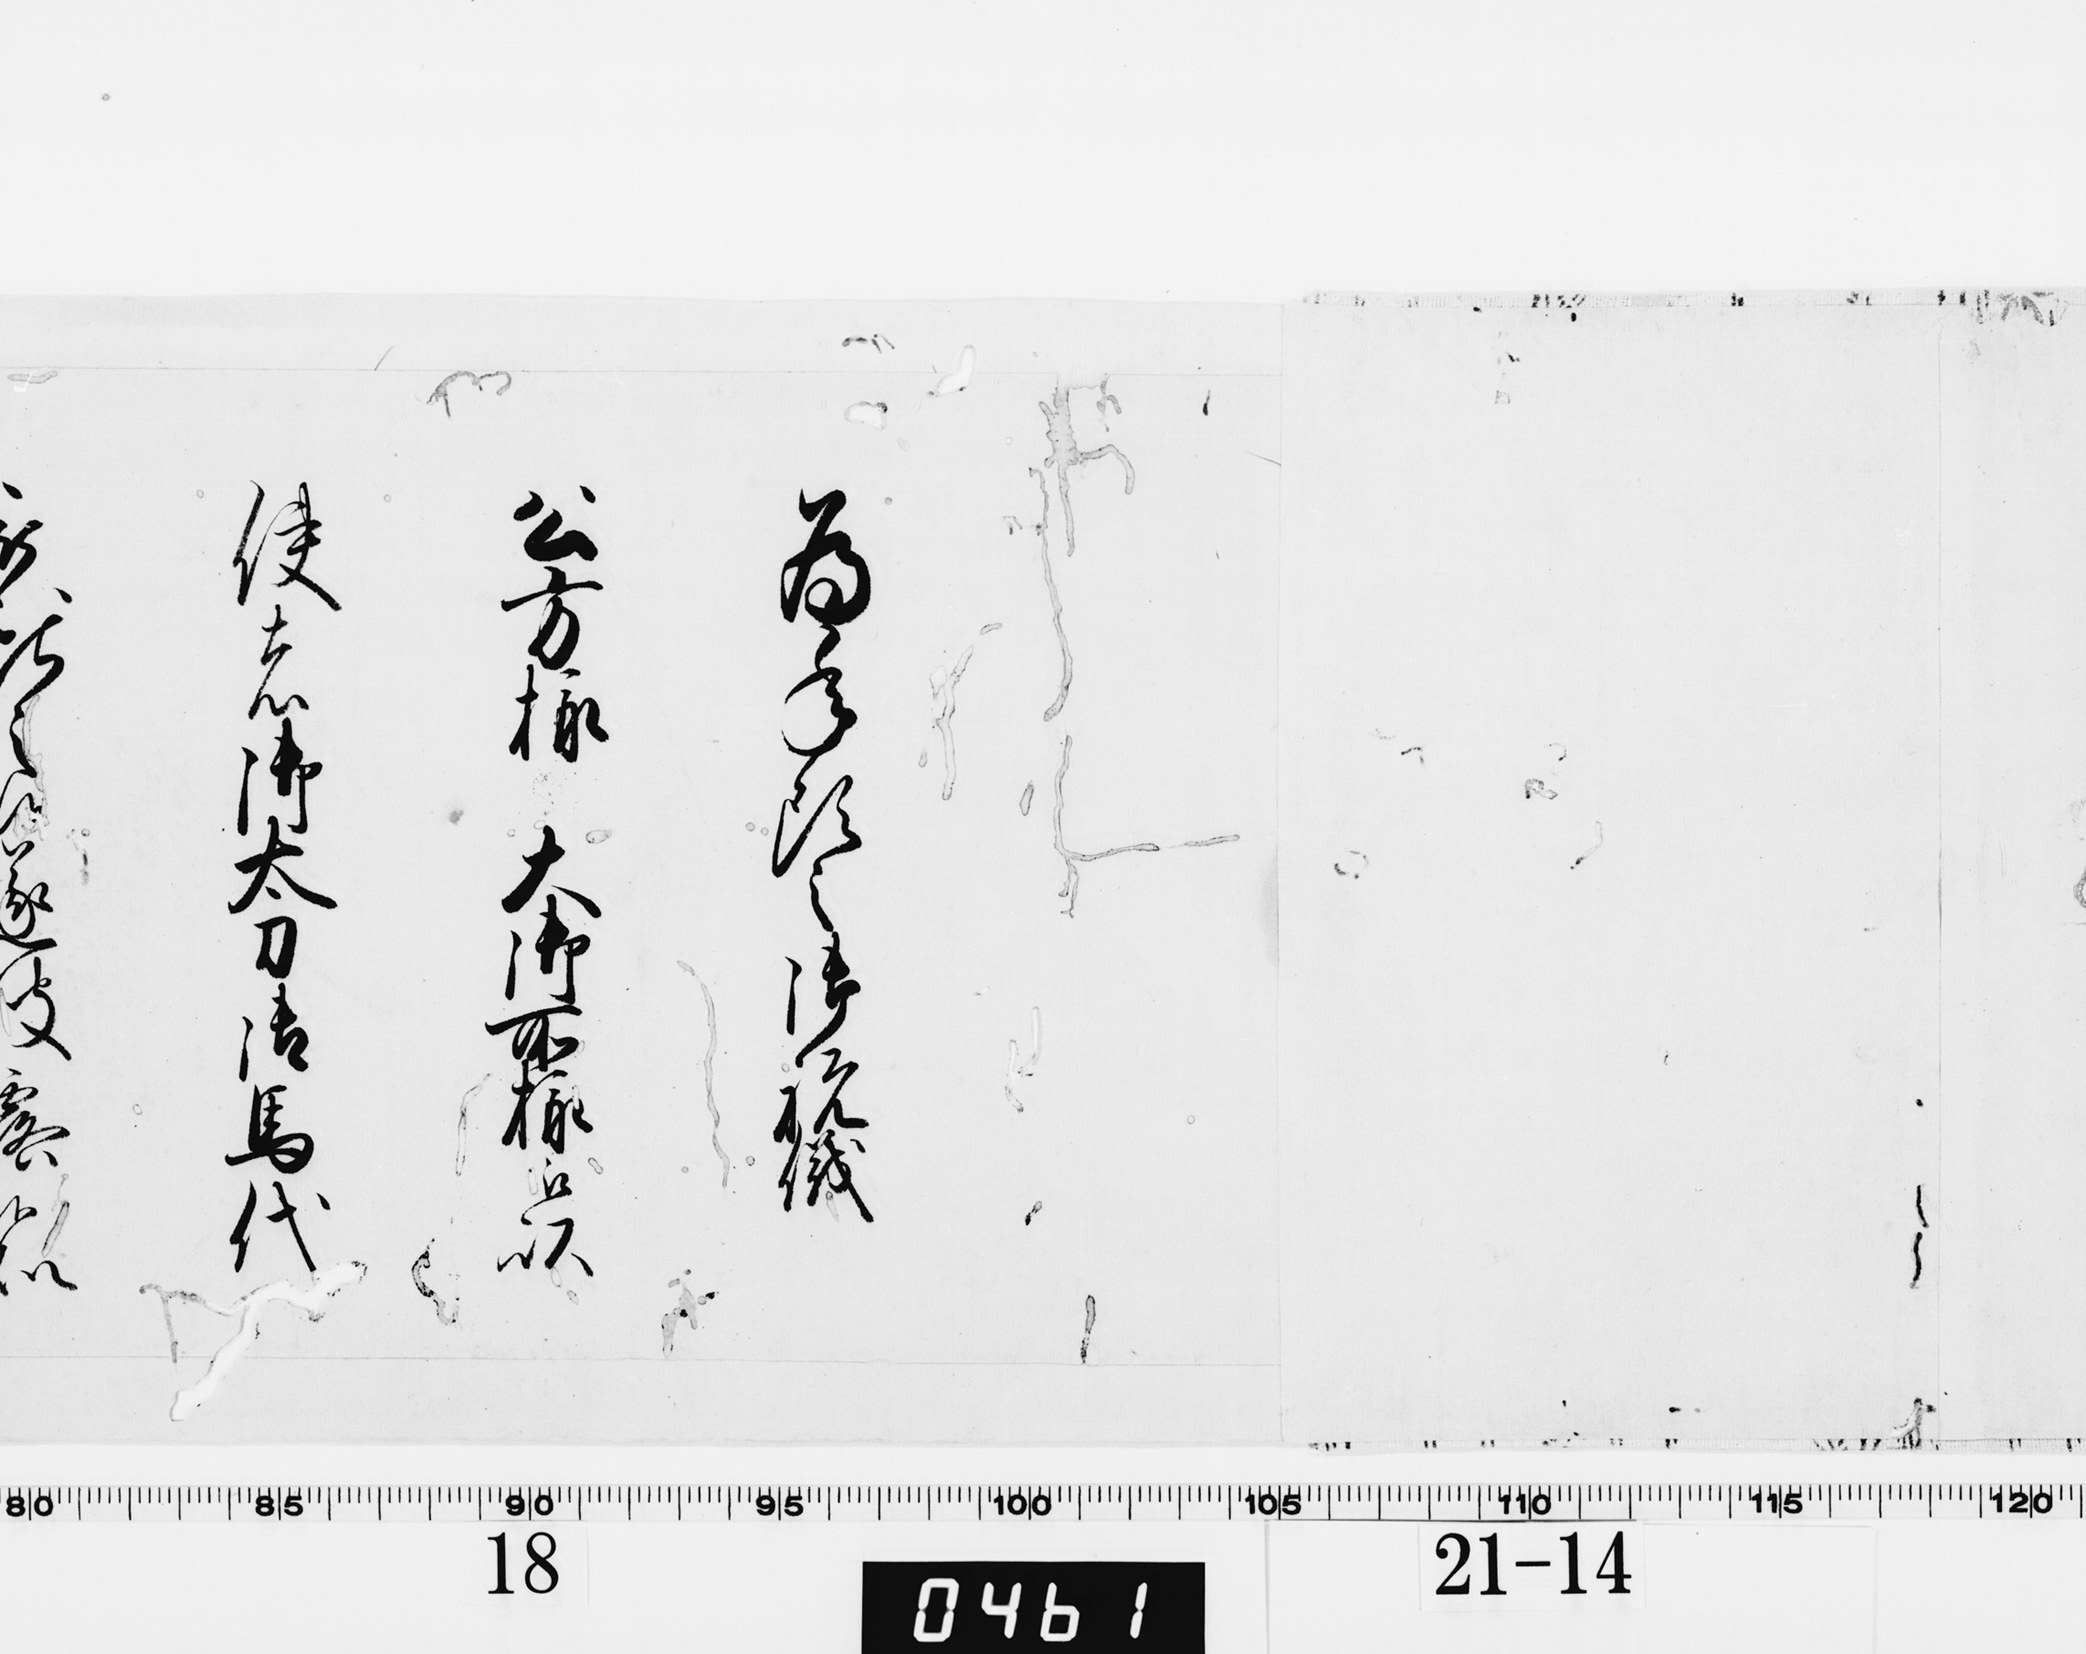 為年頭之御祝儀
公方様 大御所様江以
使者御太刀御馬代
之 遂披露
80 85 90 95 100 105 110 115 120
18
21-14
0461